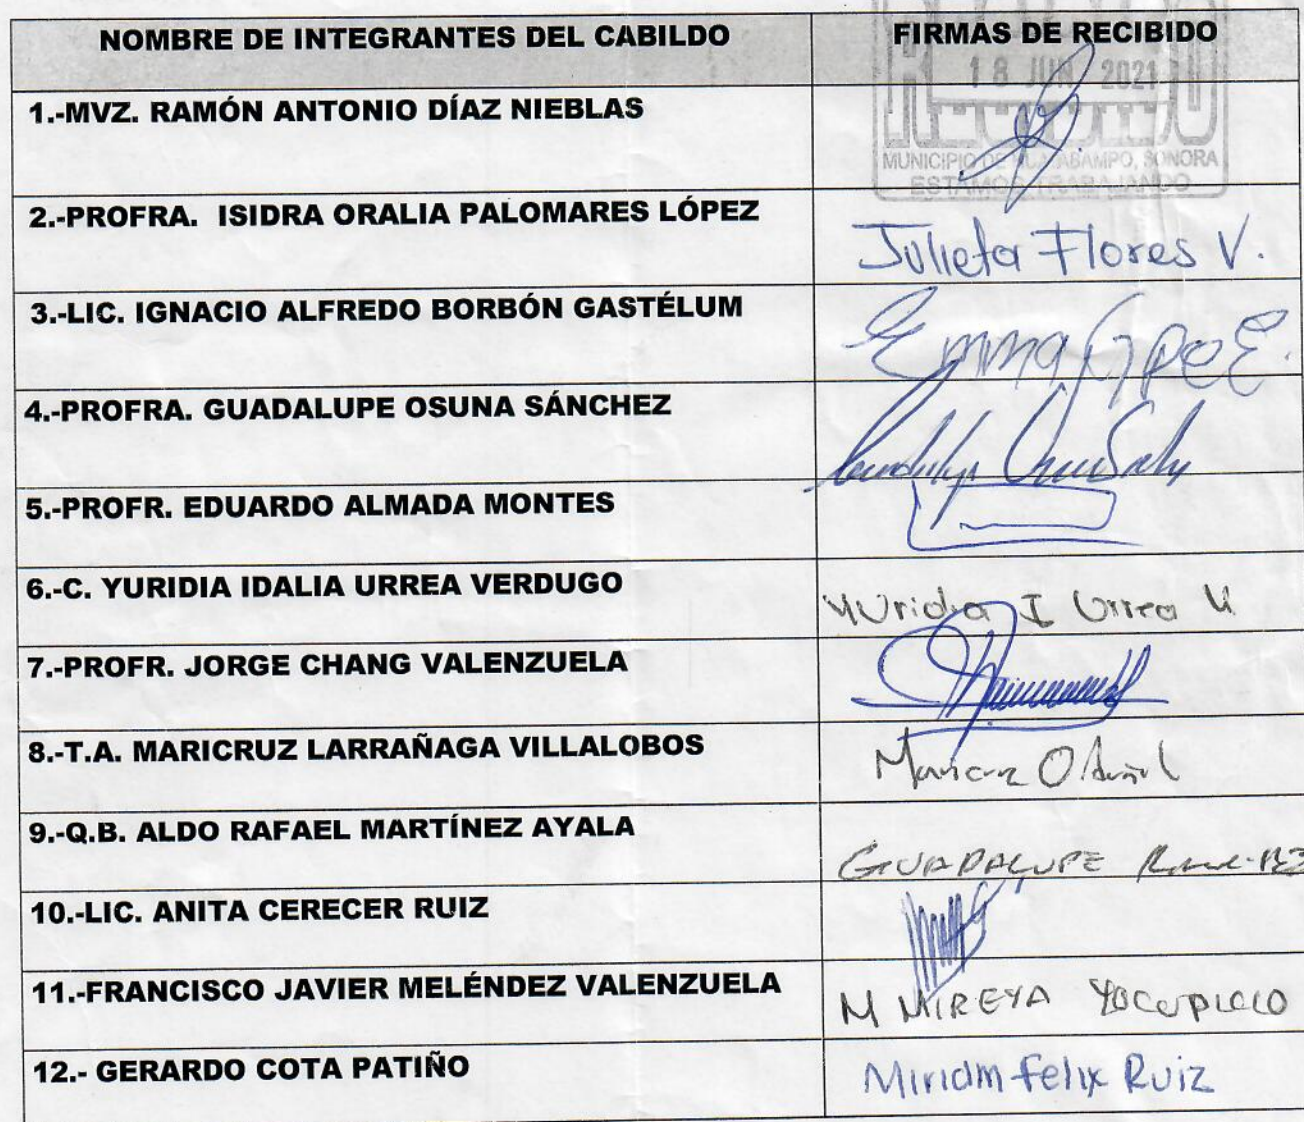 NOMBRE DE INTEGRANTES DEL CABILDO FIRMAS DE RECIBIDO
18 JUN 2021
1.-MVZ. RAMÓN ANTONIO DÍAZ NIEBLAS
MUNICIPIO DE HUATABAMPO, SONORA
ESTAMOS TRABAJANDO
2.-PROFRA. ISIDRA ORALIA PALOMARES LÓPEZ Julieta Flores V.
3.-LIC. IGNACIO ALFREDO BORBÓN GASTÉLUM Emma Gpe E.
4.-PROFRA. GUADALUPE OSUNA SÁNCHEZ
5.-PROFR. EDUARDO ALMADA MONTES
6.-C. YURIDIA IDALIA URREA VERDUGO Yuridia I Urrea V
7.-PROFR. JORGE CHANG VALENZUELA
8.-T.A. MARICRUZ LARRAÑAGA VILLALOBOS Maricruz
9.-Q.B. ALDO RAFAEL MARTÍNEZ AYALA GUADALUPE
10.-LIC. ANITA CERECER RUIZ
11.-FRANCISCO JAVIER MELÉNDEZ VALENZUELA M MIREYA
12.- GERARDO COTA PATIÑO Miriam Felix Ruiz